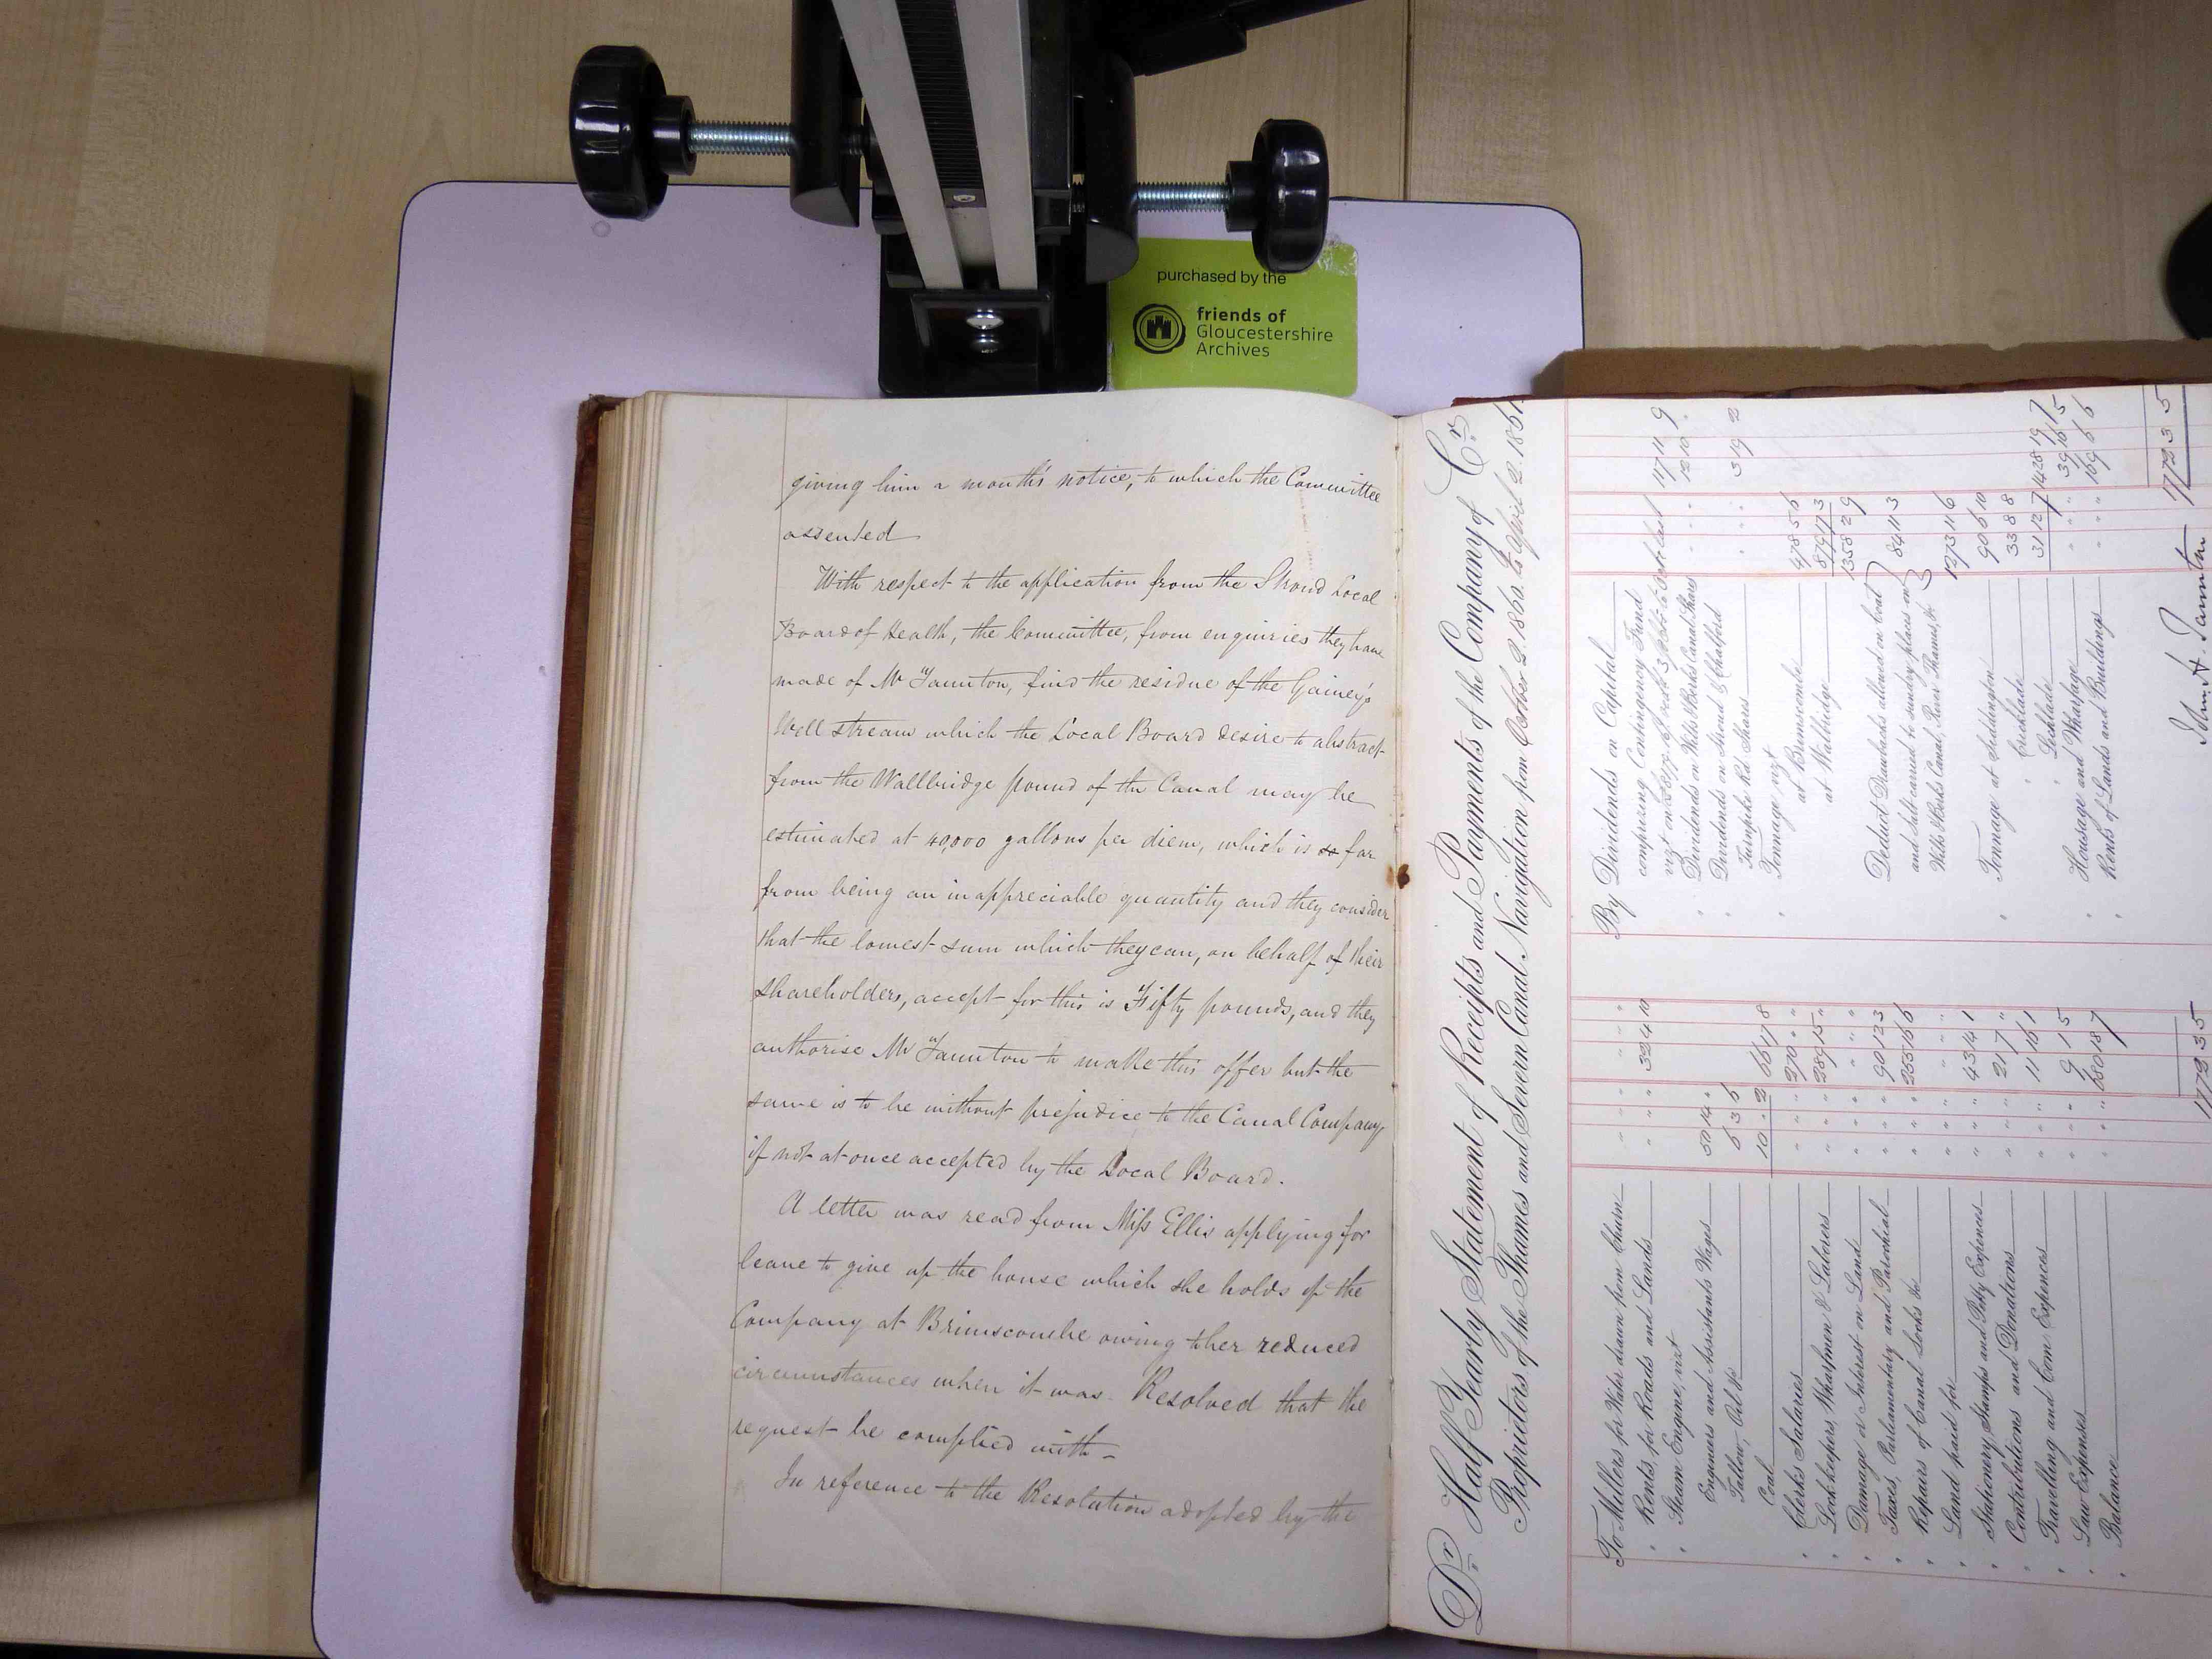 purchased by the
friends of
Gloucestershire
Archives
giving him a month's notice, to which the Committee
assented
With respect to the application from the Stroud Local
Board of Health, the Committee, from enquiries they have
made of Mr Taunton, find the residue of the Gainey's
Well stream which the Local Board desire to abstract
from the Wallbridge pound of the Canal may be
estimated at 40,000 gallons per diem, which is so far
from being an inappreciable quantity and they consider
that the lowest sum which they can, on behalf of their
shareholders, accept for this is Fifty pounds, and they
authorise Mr Taunton to make this offer but the
same is to be without prejudice to the Canal Company,
if not at once accepted by the Local Board.
A letter was read from Miss Ellis applying for
leave to give up the house which she holds of the
Company at Brimscombe owing to her reduced
circumstances when it was Resolved that the
request be complied with -
In reference to the Resolution adopted by the
Dr Half Yearly Statement of Receipts and Payments of the Company of Cr
Proprietors of the Thames and Severn Canal Navigation from October 2. 1860 to April 2. 1861.
To Millers for Water drawn from Churn " " "
" Rents, for Roads and Lands " " " 332 4 10
" Steam Engine, vizt
Engineers and Assistants Wages 50 14 "
Tallow, Oil &c 5 3 5
Coal 10 " 2 66 17 8
" Clerks Salaries " " " 270 " "
" Lockkeepers, Wharfmen & Laborers " " " 289 15 "
" Damage or Interest on Land " " "
" Taxes, Parliamentary and Parochial " " " 90 12 3
" Repairs of Canal Locks &c " " " 255 16 6
" Land paid for " " "
" Stationery, Stamps and Petty Expences " " " 43 4 1
" Contributions and Donations " " " 21 7 "
" Travelling and Com Expences " " " 11 16 1
" Law Expenses " " " 9 1 5
" Balance
1772 3 5
By Dividends on Capital
comprising Contingency Fund
" Dividends on Wilts & Berks Canal Shares " " " 12 10 "
" Dividends on Stroud & Chalford
Turnpike Rd Shares " " " 3 19 2
" Tonnage vizt
at Brimscombe 478 5 6
at Wallbridge 879 17 3
1358 2 9
Deduct Drawbacks allowed on Coal
and Salt carried to sundry places on
Wilts & Berks Canal, River Thames, &c 84 11 3
1273 11 6
" Tonnage at Siddington 90 6 10
" Cricklade 33 8 8
" Lechlade 31 12 7 1428 19 7
" Housage and Wharfage " " " 39 16 5
" Rents of Lands and Buildings " " " 169 6 6
1772 3 5
John H. Taunton